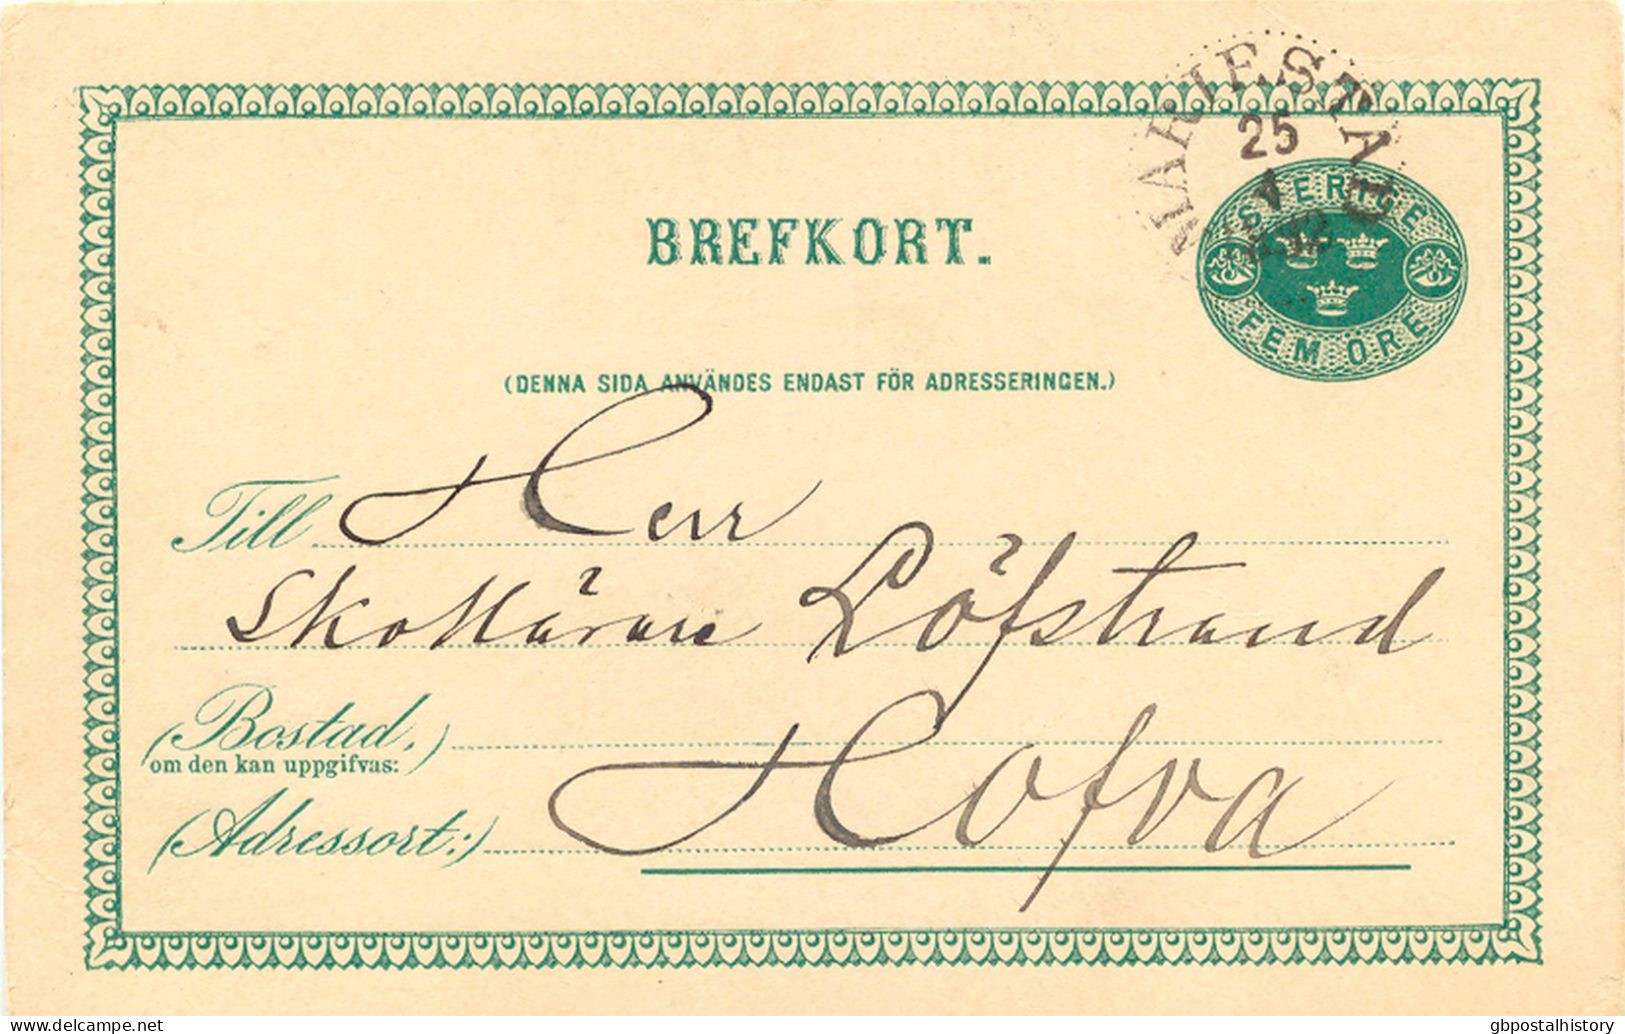 MARIESTAD
25
4
1892
SVERIGE
FEM ÖRE
BREFKORT.
(DENNA SIDA ANVÄNDES ENDAST FÖR ADRESSERINGEN.)
Till Herr
Skollärare Löfstrand
(Bostad,)
om den kan uppgifvas:
(Adressort:) Hofva
www.delcampe.net
gbpostalhistory